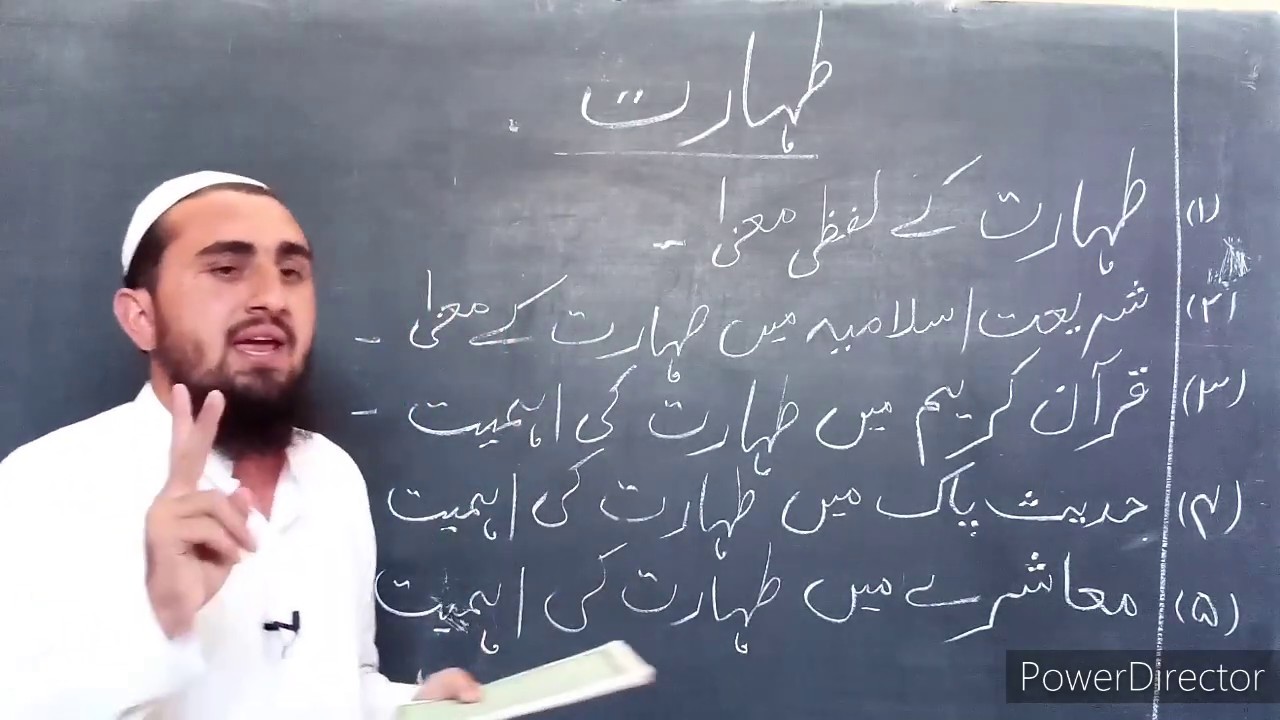 طہارت
(۱) طہارت کے لفظی معنیٰ ۔
(۲) شریعت اسلامیہ میں طہارت کے معنیٰ ۔
(۳) قرآن کریم میں طہارت کی اہمیت ۔
(۴) حدیث پاک میں طہارت کی اہمیت
(۵) معاشرے میں طہارت کی اہمیت
PowerDirector